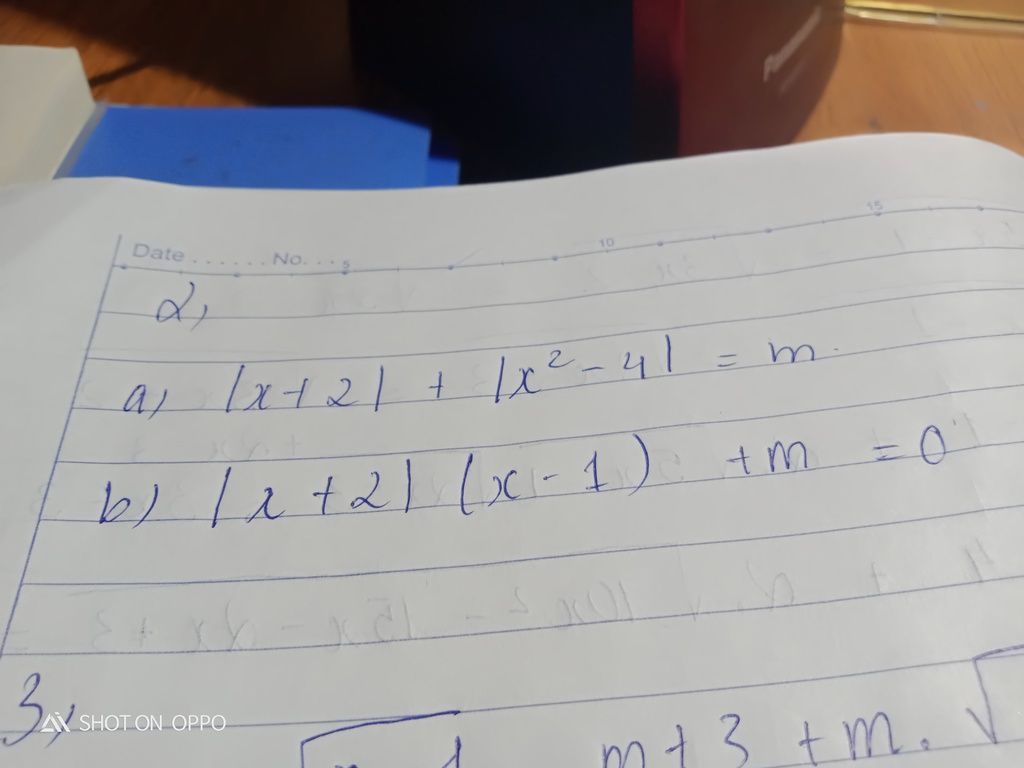 Date ...... No. ... 5 10 15
2,
a) |x+2| + |x² - 4| = m.
b) |x+2| (x-1) + m = 0
3,
m+3 + m. √
SHOT ON OPPO